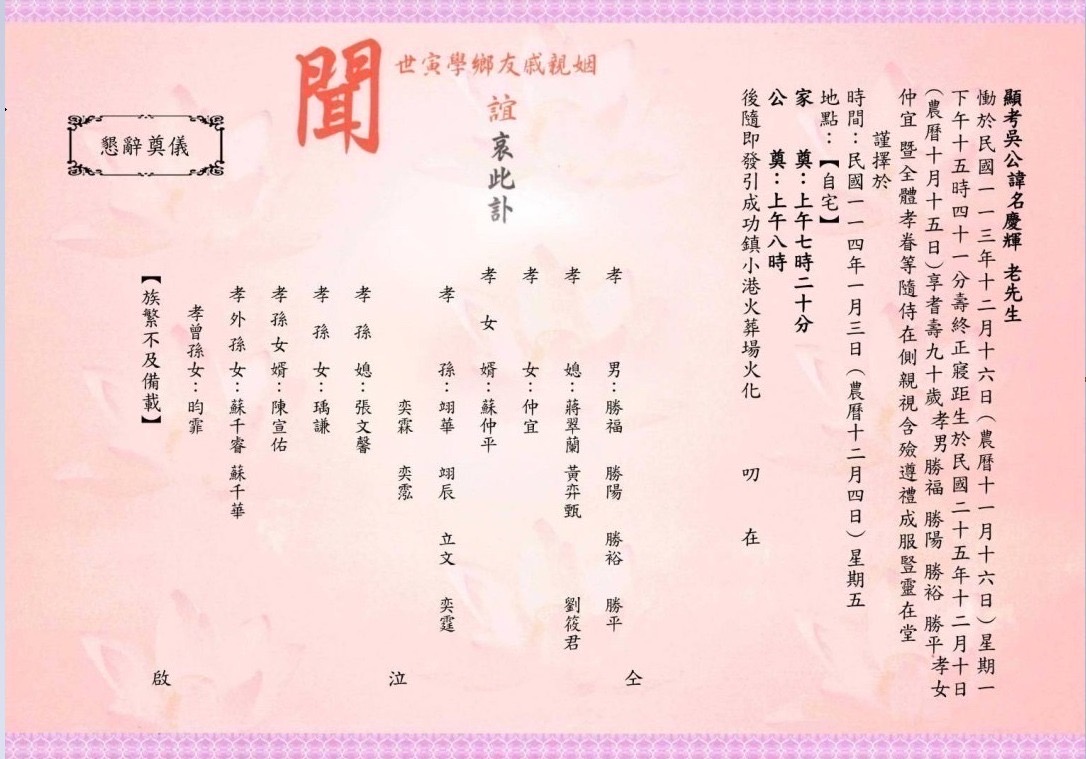 顯考吳公諱名慶輝 老先生
慟於民國一一三年十二月十六日（農曆十一月十六日）星期一
下午十五時四十一分壽終正寢距生於民國二十五年十二月十日
（農曆十月十五日）享耆壽九十歲 孝男 勝福 勝陽 勝裕 勝平 孝女
仲宜 暨全體孝眷等隨侍在側親視含殮遵禮成服豎靈在堂
謹擇於
時間：民國一一四年一月三日（農曆十二月四日）星期五
地點：【自宅】
家 奠：上午七時二十分
公 奠：上午八時
後隨即發引成功鎮小港火葬場火化 叨 在
姻親戚友鄉學寅世
誼
哀此訃
聞
孝 男：勝福 勝陽 勝裕 勝平
孝 媳：蔣翠蘭 黃弈甄 劉筱君
孝 女：仲宜
孝 女 婿：蘇仲平
孝 孫：翊華 翊辰 立文 奕霆
奕霖 奕霐
孝 孫 媳：張文馨
孝 孫 女：瑀謙
孝 孫 女 婿：陳宣佑
孝 外 孫 女：蘇千睿 蘇千華
孝曾孫女：昀霏
【族繁不及備載】
仝 泣 啟
懇辭奠儀